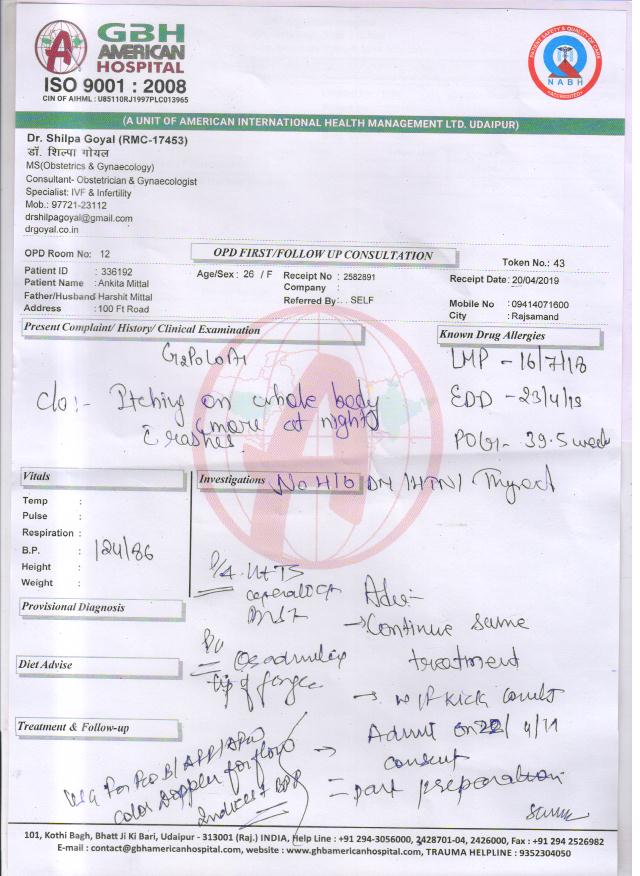 GBH
AMERICAN
HOSPITAL
ISO 9001 : 2008
CIN OF AIHML : U85110RJ1997PLC013965
PATIENT SAFETY & QUALITY OF CARE
NABH
ACCREDITED
(A UNIT OF AMERICAN INTERNATIONAL HEALTH MANAGEMENT LTD. UDAIPUR)
Dr. Shilpa Goyal (RMC-17453)
डॉ. शिल्पा गोयल
MS(Obstetrics & Gynaecology)
Consultant- Obstetrician & Gynaecologist
Specialist: IVF & Infertility
Mob.: 97721-23112
drshilpagoyal@gmail.com
drgoyal.co.in
OPD Room No: 12
OPD FIRST/FOLLOW UP CONSULTATION
Token No.: 43
Patient ID : 336192
Age/Sex : 26 / F
Receipt No : 2582891
Receipt Date: 20/04/2019
Patient Name : Ankita Mittal
Company :
Father/Husband Harshit Mittal
Referred By: . . SELF
Mobile No : 09414071600
Address : 100 Ft Road
City : Rajsamand
Present Complaint/ History/ Clinical Examination
Known Drug Allergies
G2P0L0A1
LMP - 16/7/18
c/o :- Itching on whole body
EDD - 23/4/19
(more at night)
rashes.
POG - 39.5 week
Vitals
Investigations
No H/o DM / HTN / Thyroid
Temp :
Pulse :
Respiration :
B.P. : 124/86
Height :
Weight :
P/A. UT TS
Adv:-
Provisional Diagnosis
→ Continue same
treatment
P/V
Os admits
tip of finger
Diet Advise
→ kick count
Treatment & Follow-up
Admit on 22/4/19
→ consent
USG For
color Doppler for flow
Indices +
= part preparation
101, Kothi Bagh, Bhatt Ji Ki Bari, Udaipur - 313001 (Raj.) INDIA, Help Line : +91 294-3056000, 2428701-04, 2426000, Fax : +91 294 2526982
E-mail : contact@gbhamericanhospital.com, website : www.ghbamericanhospital.com, TRAUMA HELPLINE : 9352304050